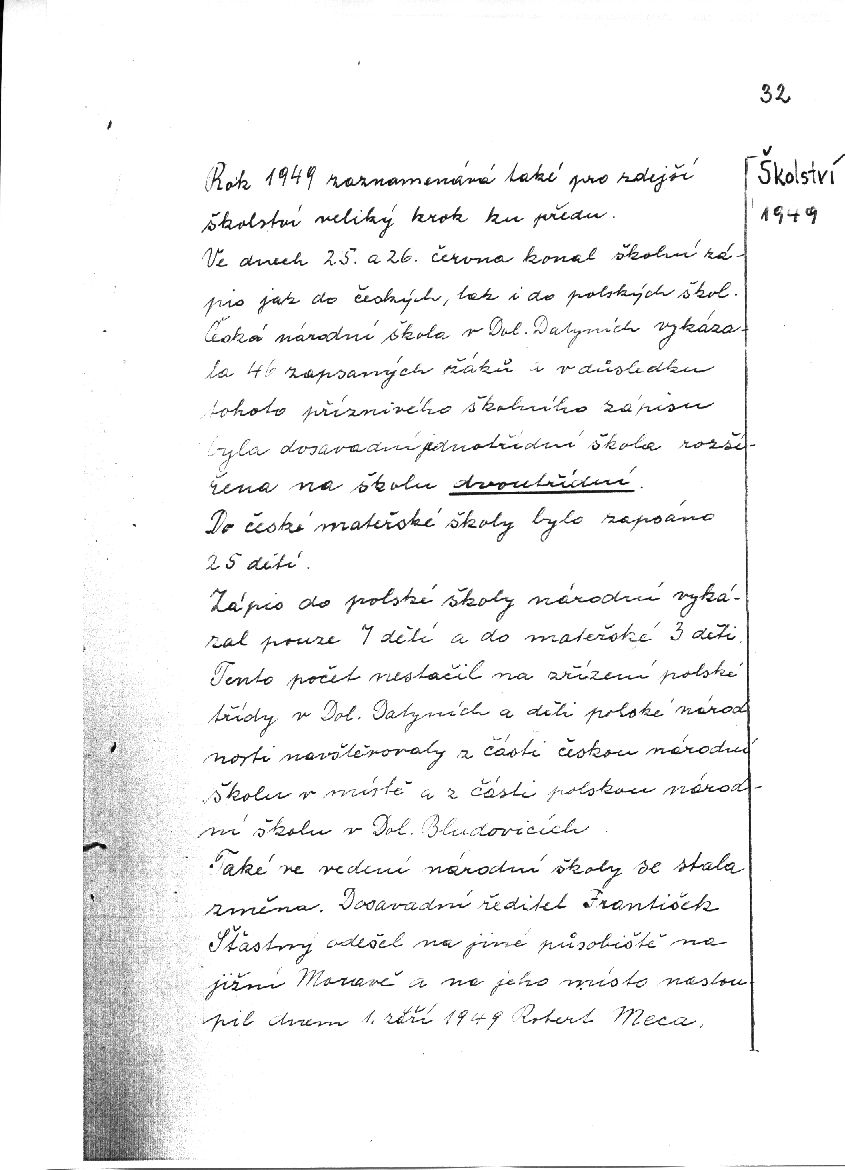 32
Školství
1949
Rok 1949 zaznamenává také pro zdejší
školství veliký krok ku předu.
Ve dnech 25. a 26. června konal školní zá-
pis jak do českých, tak i do polských škol.
Česká národní škola v Dol. Datyních vykáza-
la 46 zapsaných žáků i v důsledku
tohoto příznivého školního zápisu
byla dosavadní jednotřídní škola rozší-
řena na školu dvoutřídní.
Do české mateřské školy bylo zapsáno
25 dětí.
Zápis do polské školy národní vyká-
zal pouze 7 dětí a do mateřské 3 děti.
Tento počet nestačil na zřízení polské
třídy v Dol. Datyních a děti polské národ
nosti navštěvovaly z části českou národní
školu v místě a z části polskou národ-
ní školu v Dol. Bludovicích.
Také ve vedení národní školy se stala
změna. Dosavadní ředitel František
Šťastný odešel na jiné působiště na
jižní Moravě a na jeho místo nastou-
pil dnem 1. září 1949 Robert Meca.